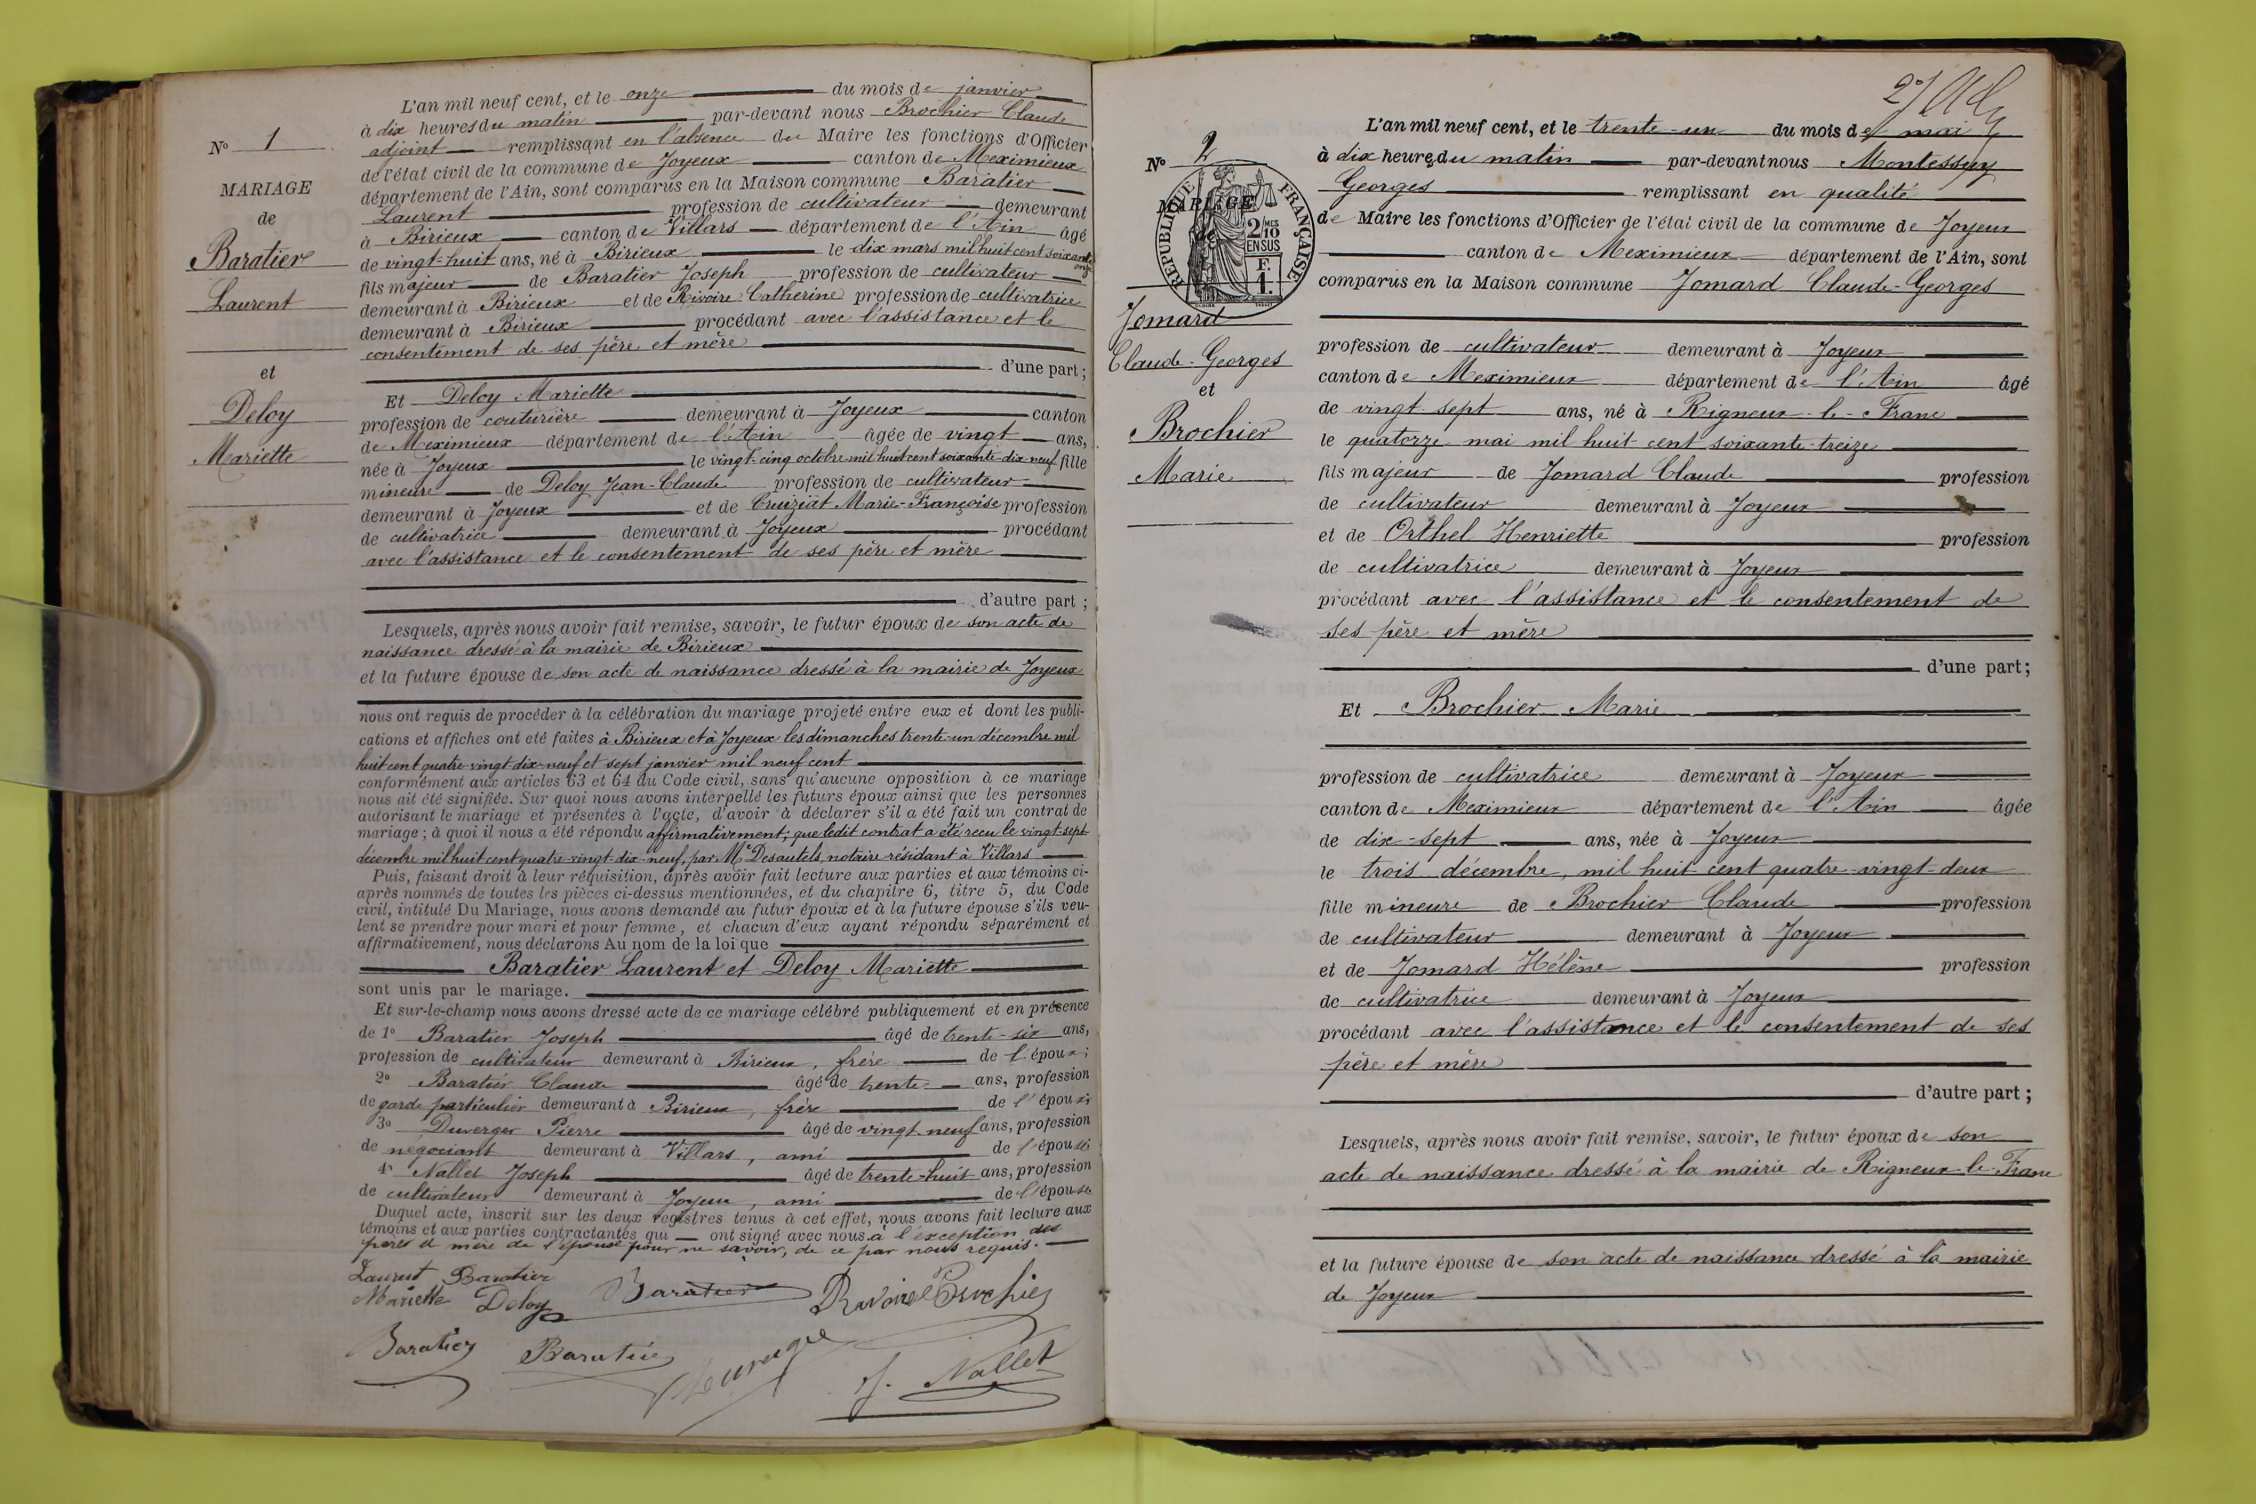 L'an mil neuf cent, et le onze du mois de janvier
à dix heures du matin par-devant nous Brochier Claude
adjoint remplissant en l'absence du Maire les fonctions d'Officier
de l'état civil de la commune de Joyeux canton de Meximieux
département de l'Ain, sont comparus en la Maison commune Baratier
Laurent profession de cultivateur demeurant
à Birieux canton de Villars département de l'Ain âgé
de vingt-huit ans, né à Birieux le dix mars mil huit cent soixante
onze
fils majeur de Baratier Joseph profession de cultivateur
demeurant à Birieux et de Rivoire Catherine profession de cultivatrice
demeurant à Birieux procédant avec l'assistance et le
consentement de ses père et mère
d'une part;
Et Deloy Mariette
profession de couturière demeurant à Joyeux canton
de Meximieux département de l'Ain âgée de vingt ans,
née à Joyeux le vingt-cinq octobre mil huit cent soixante-dix-neuf fille
mineure de Deloy Jean-Claude profession de cultivateur
demeurant à Joyeux et de Cruiziat Marie-Françoise profession
de cultivatrice demeurant à Joyeux procédant
avec l'assistance et le consentement de ses père et mère
d'autre part;
Lesquels, après nous avoir fait remise, savoir, le futur époux de son acte de
naissance dressé à la mairie de Birieux
et la future épouse de son acte de naissance dressé à la mairie de Joyeux
nous ont requis de procéder à la célébration du mariage projeté entre eux et dont les publi-
cations et affiches ont eté faites à Birieux et à Joyeux les dimanches trente-un décembre mil
huit cent quatre-vingt-dix-neuf et sept janvier mil neuf cent
conformément aux articles 63 et 64 du Code civil, sans qu'aucune opposition à ce mariage
nous ait été signifiée. Sur quoi nous avons interpellé les futurs époux ainsi que les personnes
autorisant le mariage et présentes à l'acte, d'avoir à déclarer s'il a été fait un contrat de
mariage; à quoi il nous a été répondu affirmativement; que ledit contrat a été reçu le vingt-sept
décembre mil huit cent quatre-vingt-dix-neuf, par Me Desautels, notaire résidant à Villars
Puis, faisant droit à leur réquisition, après avoir fait lecture aux parties et aux témoins ci-
après nommés de toutes les pièces ci-dessus mentionnées, et du chapitre 6, titre 5, du Code
civil, intitulé Du Mariage, nous avons demandé au futur époux et à la future épouse s'ils veu-
lent se prendre pour mari et pour femme, et chacun d'eux ayant répondu séparément et
affirmativement, nous déclarons Au nom de la loi que
Baratier Laurent et Deloy Mariette
sont unis par le mariage.
Et sur-le-champ nous avons dressé acte de ce mariage célébré publiquement et en présence
de 1º Baratier Joseph âgé de trente-six ans,
profession de cultivateur demeurant à Birieux, frère de l'époux;
2º Baratier Claude âgé de trente ans, profession
de garde particulier demeurant à Birieux, frère de l'époux
3º Duverger Pierre âgé de vingt-neuf ans, profession
de négociant demeurant à Villars, ami de l'épouse
4º Nallet Joseph âgé de trente-huit ans, profession
de cultivateur demeurant à Joyeux, ami de l'épouse
Duquel acte, inscrit sur les deux registres tenus à cet effet, nous avons fait lecture aux
témoins et aux parties contractantes qui ont signé avec nous à l'exception des
père et mère de l'épouse pour ne savoir, de ce par nous requis.
Laurent Baratier
Mariette Deloy Baratier Rivoire Brochier
Baratier Baratier Duverger J. Nallet
Nº 1
MARIAGE
de
Baratier
Laurent
et
Deloy
Mariette
Nº 2
MARIAGE
de
RÉPUBLIQUE FRANÇAISE
2/10 MES
EN SUS
F.
1.
Jomard
Claude-Georges
et
Brochier
Marie
L'an mil neuf cent, et le trente-un du mois de mai
à dix heures du matin par-devant nous Montessuy
Georges remplissant en qualité
de Maire les fonctions d'Officier de l'état civil de la commune de Joyeux
canton de Meximieux département de l'Ain, sont
comparus en la Maison commune Jomard Claude-Georges
profession de cultivateur demeurant à Joyeux
canton de Meximieux département de l'Ain âgé
de vingt-sept ans, né à Rigneux-le-Franc
le quatorze mai mil huit cent soixante-treize
fils majeur de Jomard Claude profession
de cultivateur demeurant à Joyeux
et de Orthel Henriette profession
de cultivatrice demeurant à Joyeux
procédant avec l'assistance et le consentement de
ses père et mère
d'une part;
Et Brochier Marie
profession de cultivatrice demeurant à Joyeux
canton de Meximieux département de l'Ain âgée
de dix-sept ans, née à Joyeux
le trois décembre, mil huit cent quatre-vingt-deux
fille mineure de Brochier Claude profession
de cultivateur demeurant à Joyeux
et de Jomard Hélène profession
de cultivatrice demeurant à Joyeux
procédant avec l'assistance et le consentement de ses
père et mère
d'autre part;
Lesquels, après nous avoir fait remise, savoir, le futur époux de son
acte de naissance dressé à la mairie de Rigneux-le-Franc
et la future épouse de son acte de naissance dressé à la mairie
de Joyeux